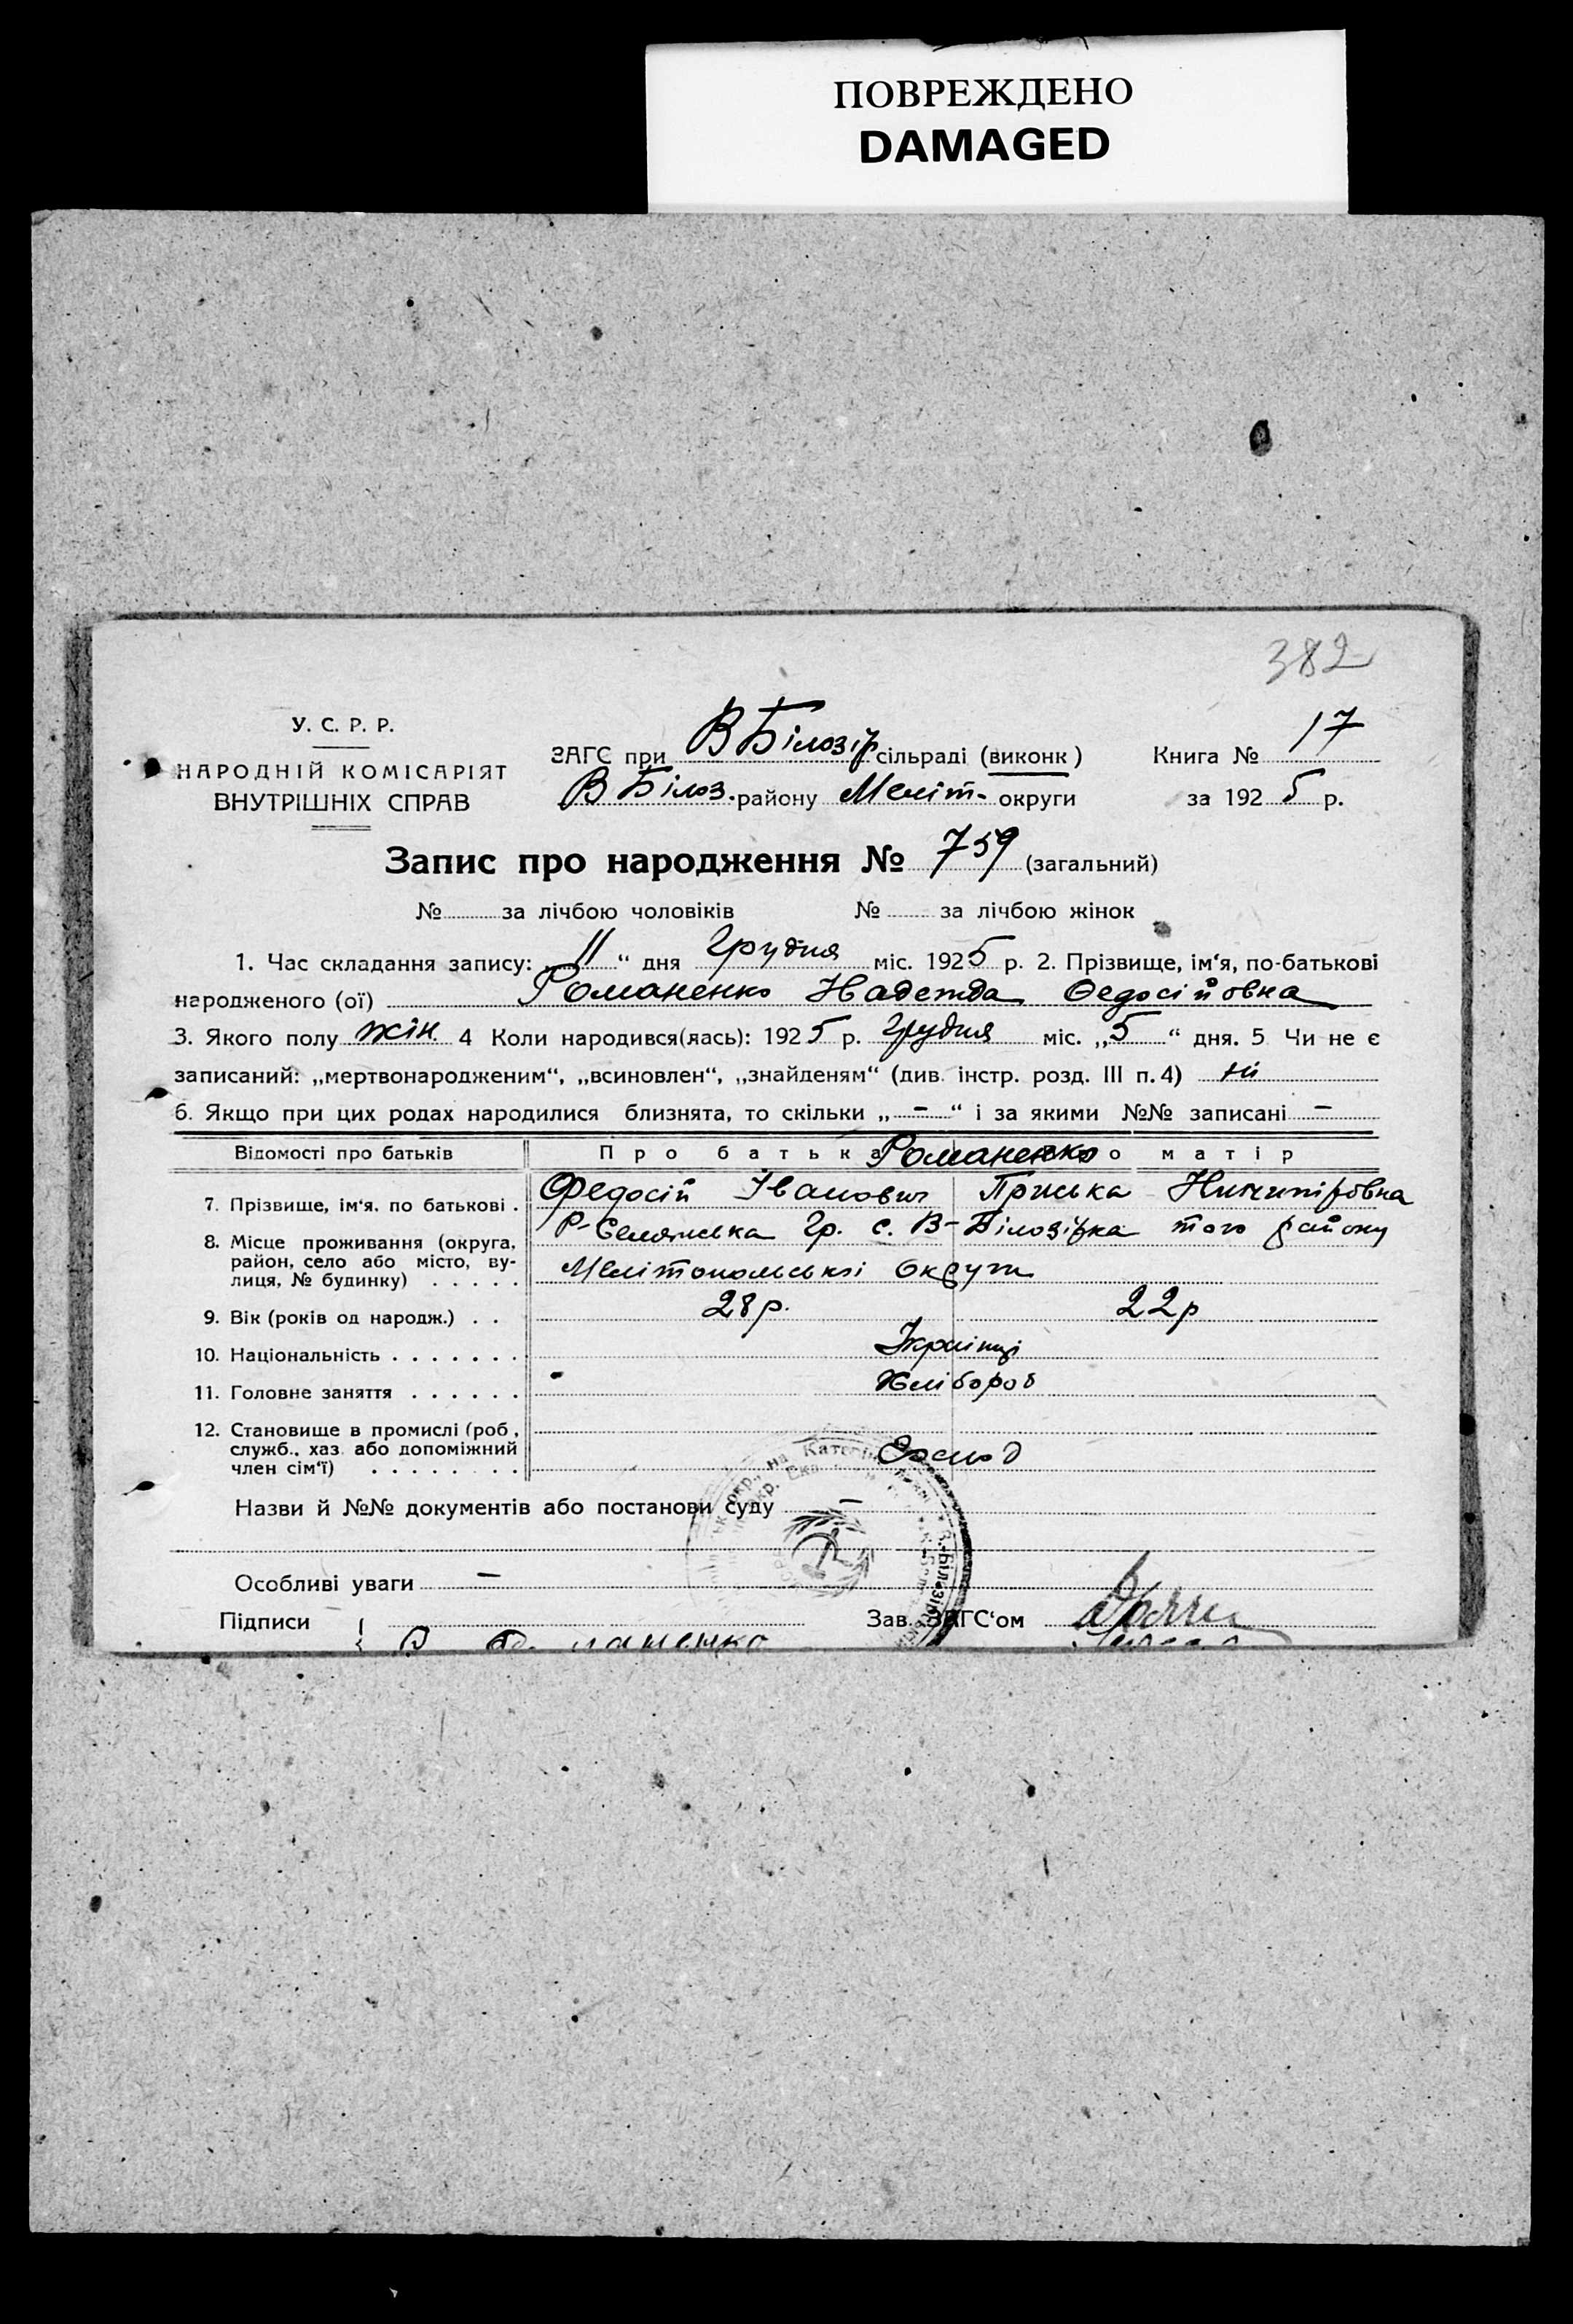 ПОВРЕЖДЕНО
DAMAGED
382
У. С. Р. Р.
НАРОДНІЙ КОМІСАРІЯТ
ВНУТРІШНІХ СПРАВ
ЗАГС при В Білозір сільраді (виконк)
В Білоз. району Меліт. округи
Книга № 17
за 1925 р.
Запис про народження № 759 (загальний)
№ за лічбою чоловіків № за лічбою жінок
1. Час складання запису: „11“ дня Грудня міс. 1925 р. 2. Прізвище, ім'я, по-батькові
народженого (ої) Романенко Надежда Федосійовна
3. Якого полу жін. 4 Коли народився(лась): 1925 р. Грудня міс. „5“ дня. 5 Чи не є
записаний: „мертвонародженим“, „всиновлен“, „знайденям“ (див. інстр. розд. III п. 4) ні
6. Якщо при цих родах народилися близнята, то скільки „-“ і за якими №№ записані -
Відомості про батьків Про батька Романенко Про матір
7. Прізвище, ім'я, по батькові . Федосій Іванович Приська Ничипірівна
8. Місце проживання (округа, район, село або місто, вулиця, № будинку) . . . . . гр. с. В-Білозірка того району
Мелітопольскі Округи
9. Вік (років од народж.) . . 28 р. 22 р
10. Національність . . . . . . . Українці
11. Головне заняття . . . . . . Хлібороб
12. Становище в промислі (роб.,
служб., хаз. або допоміжний
член сім'ї) . . . . . . . .
Назви й №№ документів або постанови суду —
Особливі уваги —
Підписи
Зав. ЗАГС'ом